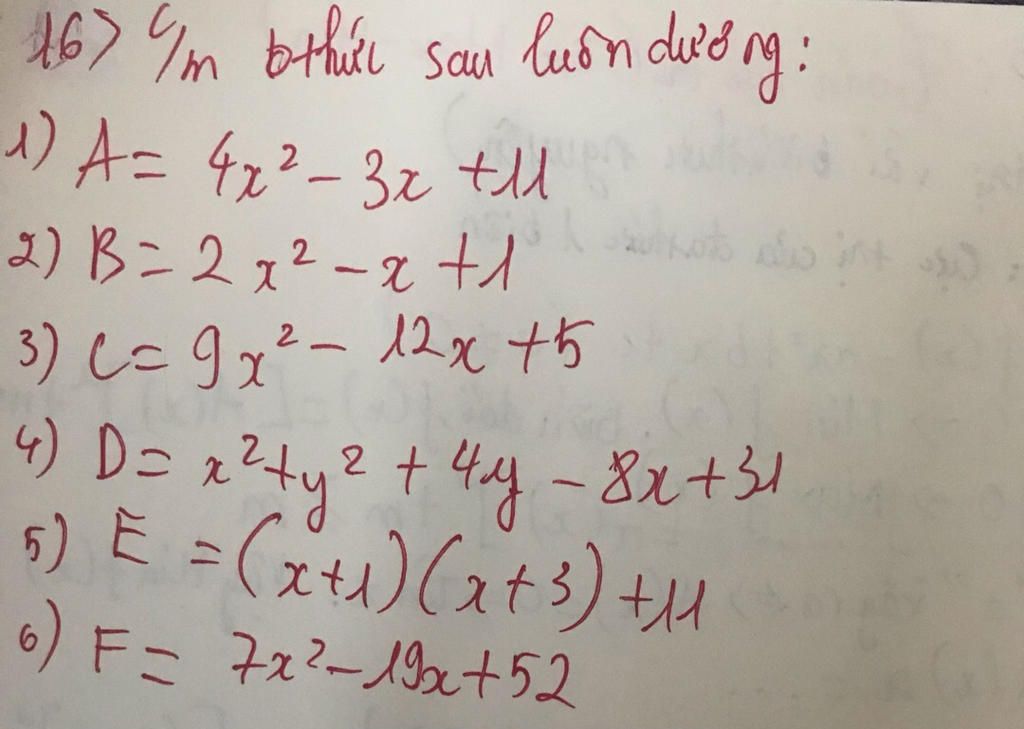 16> C/m bthức sau luôn dương:
1) A = 4x² - 3x + 11
2) B = 2x² - x + 1
3) C = 9x² - 12x + 5
4) D = x² + y² + 4y - 8x + 31
5) E = (x+1)(x+3) + 11
6) F = 7x² - 19x + 52